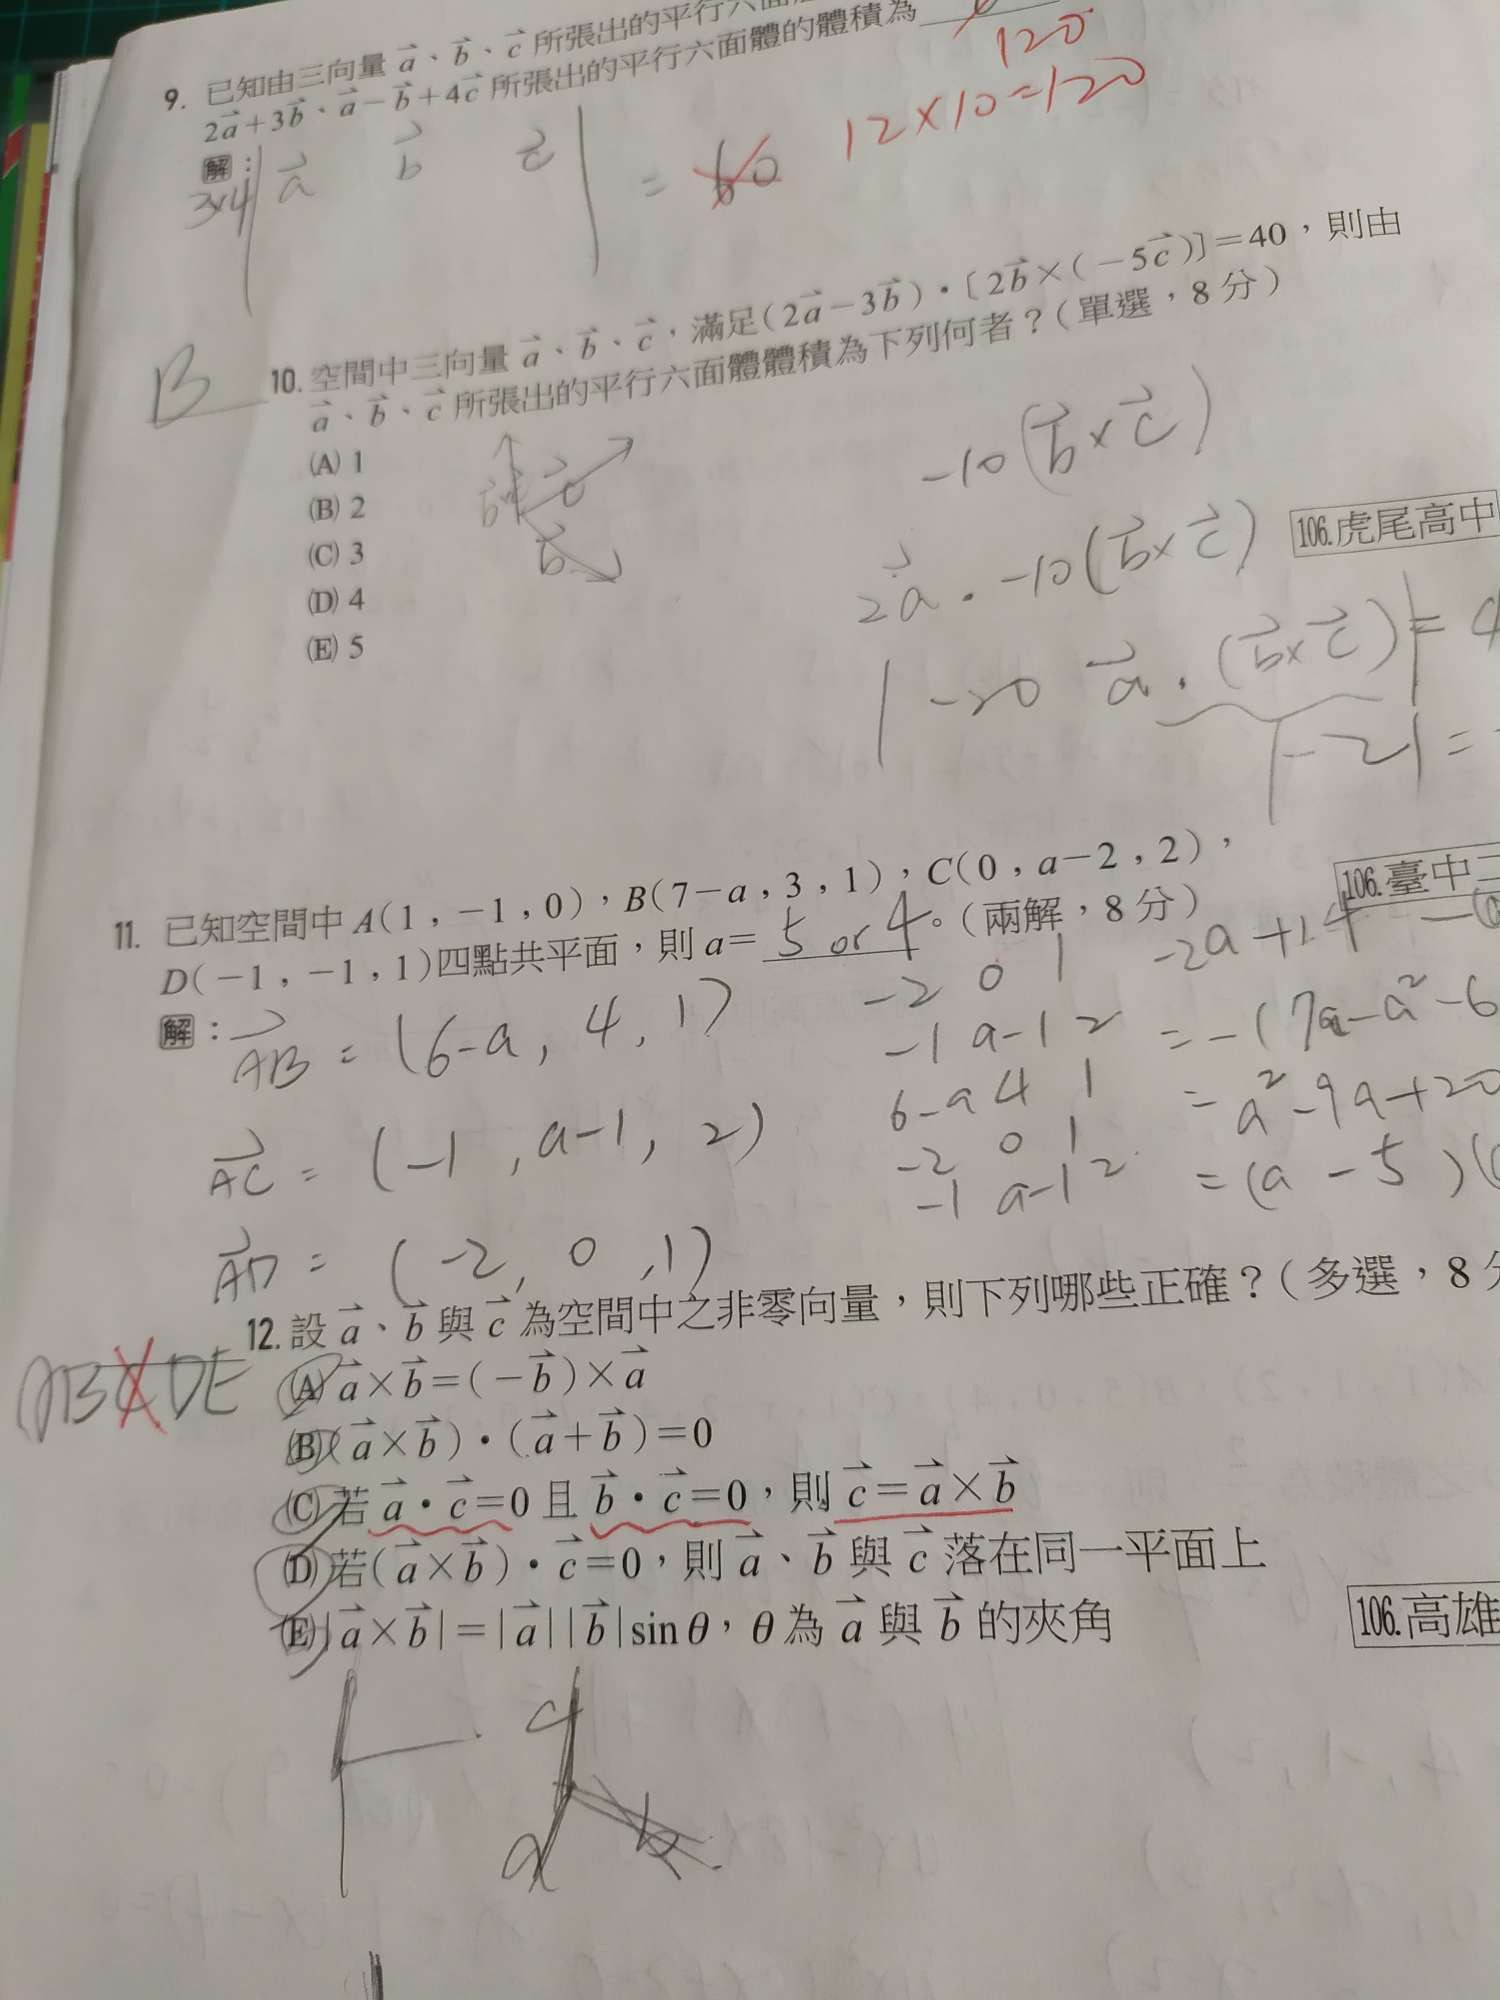 9. 已知由三向量 a、b、c 所張出的平行六面
2a+3b、a-b+4c 所張出的平行六面體的體積為
120
12×10=120
解:
3×4 | a b c | = 60
10. 空間中三向量 a、b、c，滿足(2a-3b)·〔2b×(-5c)〕=40，則由
a、b、c 所張出的平行六面體體積為下列何者？(單選，8分)
B
(A) 1
(B) 2
(C) 3
(D) 4
(E) 5
c
b
-10(b×c)
106.虎尾高中
2a·-10(b×c)
|-20 a·(b×c)|=4
|-2|=
106.臺中二
11. 已知空間中 A(1，-1，0)，B(7-a，3，1)，C(0，a-2，2)，
D(-1，-1，1)四點共平面，則 a= 5 or 4。(兩解，8分)
解:
AB = (6-a, 4, 1)
AC = (-1, a-1, 2)
AD = (-2, 0, 1)
-2 0 1
-1 a-1 2
6-a 4 1
-2 0 1
-1 a-1 2
-2a+14
=-(7a-a²-6
= a²-9a+20
=(a-5)(
12. 設 a、b 與 c 為空間中之非零向量，則下列哪些正確？(多選，8分
ABCDE
(A) a×b=(-b)×a
(B) (a×b)·(a+b)=0
(C) 若 a·c=0 且 b·c=0，則 c=a×b
(D) 若(a×b)·c=0，則 a、b 與 c 落在同一平面上
(E) |a×b|=|a||b|sinθ，θ 為 a 與 b 的夾角
106.高雄
c
a
b